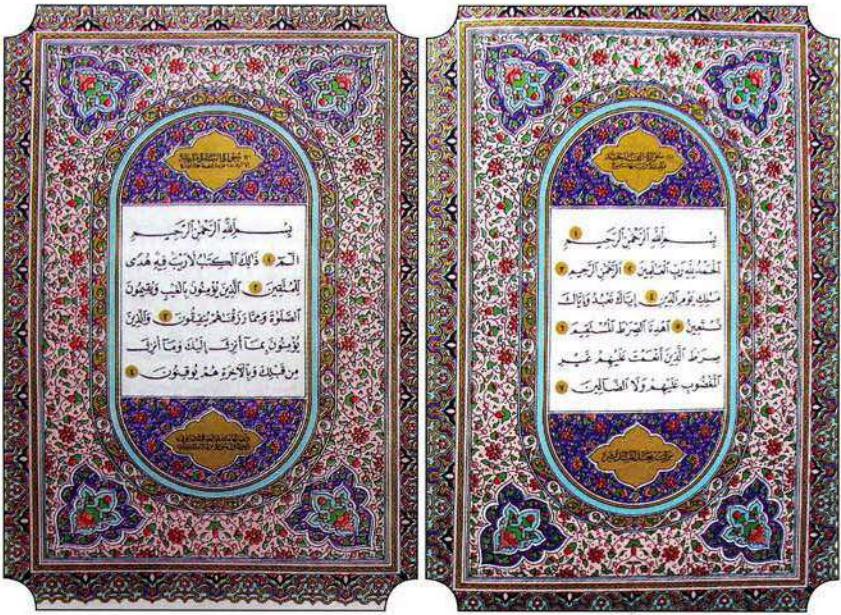 بِسْمِ ٱللَّهِ ٱلرَّحْمَٰنِ ٱلرَّحِيمِ ١
ٱلْحَمْدُ لِلَّهِ رَبِّ ٱلْعَٰلَمِينَ ٢ ٱلرَّحْمَٰنِ ٱلرَّحِيمِ ٣
مَٰلِكِ يَوْمِ ٱلدِّينِ ٤ إِيَّاكَ نَعْبُدُ وَإِيَّاكَ
نَسْتَعِينُ ٥ ٱهْدِنَا ٱلصِّرَٰطَ ٱلْمُسْتَقِيمَ ٦
صِرَٰطَ ٱلَّذِينَ أَنْعَمْتَ عَلَيْهِمْ غَيْرِ
ٱلْمَغْضُوبِ عَلَيْهِمْ وَلَا ٱلضَّآلِّينَ ٧
بِسْمِ ٱللَّهِ ٱلرَّحْمَٰنِ ٱلرَّحِيمِ
الٓمٓ ١ ذَٰلِكَ ٱلْكِتَٰبُ لَا رَيْبَ فِيهِ هُدًى
لِّلْمُتَّقِينَ ٢ ٱلَّذِينَ يُؤْمِنُونَ بِٱلْغَيْبِ وَيُقِيمُونَ
ٱلصَّلَوٰةَ وَمِمَّا رَزَقْنَٰهُمْ يُنفِقُونَ ٣ وَٱلَّذِينَ
يُؤْمِنُونَ بِمَآ أُنزِلَ إِلَيْكَ وَمَآ أُنزِلَ
مِن قَبْلِكَ وَبِٱلْءَاخِرَةِ هُمْ يُوقِنُونَ ٤